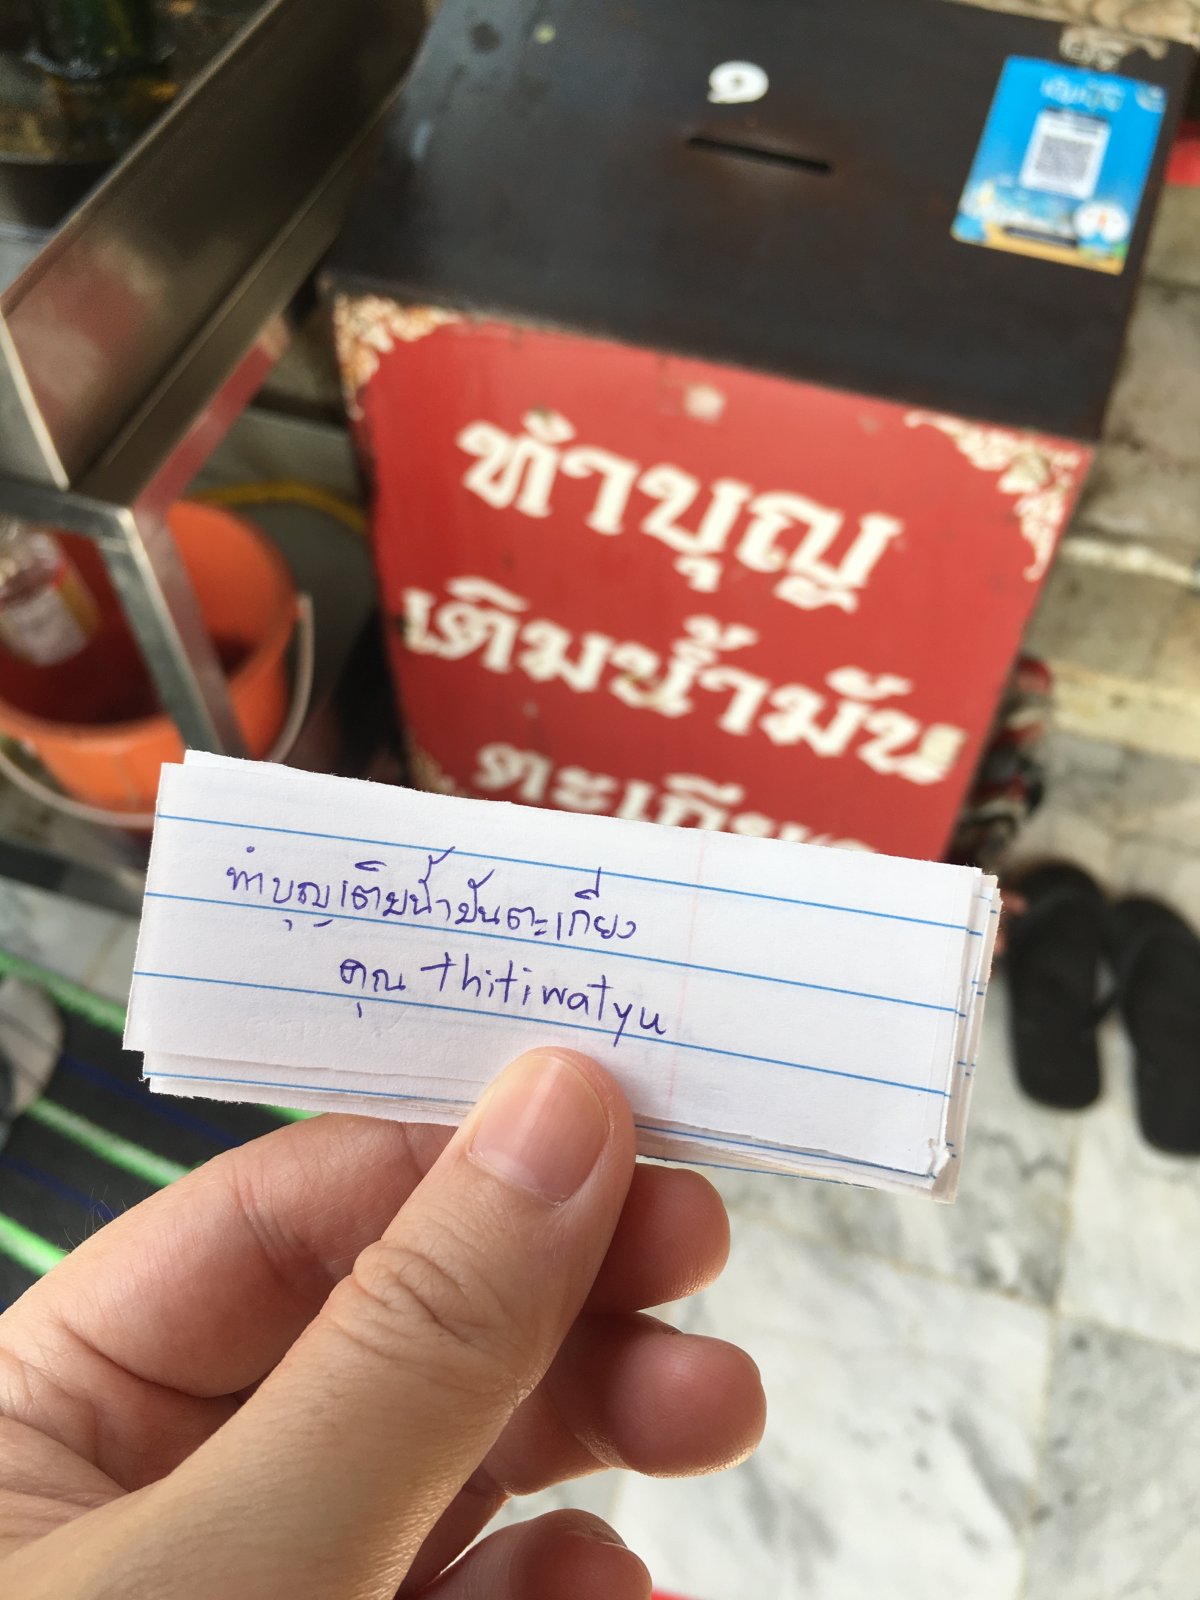 ๑
ทำบุญ
เติมน้ำมัน
ตะเกียง
ทำบุญเติมน้ำมันตะเกียง
คุณ thitiwatyu